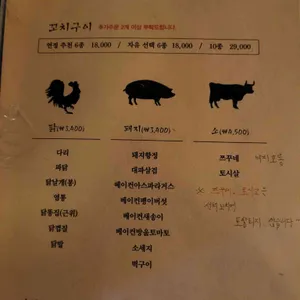 꼬치구이 추가주문 2개 이상 부탁드립니다
현정 추천 6종 18,000 / 자유 선택 6종 18,000 / 10종 29,000
닭(₩3,400) 돼지(₩3,400) 소(₩6,500)
다리
파닭
닭날개(봉)
염통
닭똥집(근위)
닭껍질
닭발
돼지항정
대파삼겹
베이컨아스파라거스
베이컨팽이버섯
베이컨새송이
베이컨방울토마토
소세지
떡구이
쯔꾸네
토시살